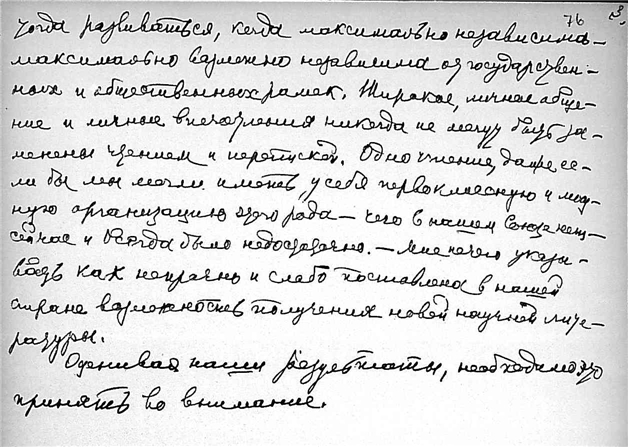 76 3.
тогда развиваться, когда максимально независима –
максимально возможно независима от государствен-
ных и общественных рамок. Широкое, личное обще-
ние и личные впечатления никогда не могут быть за-
менены чтением и перепиской. Одно чтение, даже ес-
ли бы мы могли иметь у себя первоклассную и мощ-
ную организацию этого рода – чего в нашем Союзе нет –
сейчас и всегда было недостаточно. – Мне нечего указы-
вать как непрочно и слабо поставлена в нашей
стране возможность получения новой научной лите-
ратуры.
Оценивая наши результаты, необходимо это
принять во внимание.